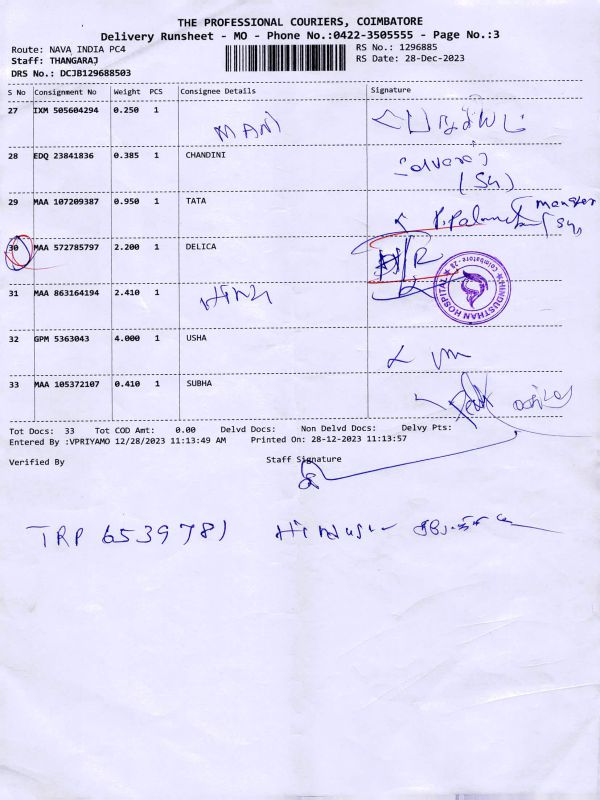 THE PROFESSIONAL COURIERS, COIMBATORE
Delivery Runsheet - MO - Phone No.:0422-3505555 - Page No.:3
Route: NAVA INDIA PC4 RS No.: 1296885
Staff: THANGARAJ RS Date: 28-Dec-2023
DRS No.: DCJB129688503
S No Consignment No Weight PCS Consignee Details Signature
27 IXM 505604294 0.250 1 MANI
28 EDQ 23841836 0.385 1 CHANDINI
(Su)
29 MAA 107209387 0.950 1 TATA
manager
30 MAA 572785797 2.200 1 DELICA
HINDUSTHAN HOSPITAL ★ Coimbatore-28 ★
31 MAA 863164194 2.410 1
32 GPM 5363043 4.000 1 USHA
33 MAA 105372107 0.410 1 SUBHA
Tot Docs: 33 Tot COD Amt: 0.00 Delvd Docs: Non Delvd Docs: Delvy Pts:
Entered By :VPRIYAMO 12/28/2023 11:13:49 AM Printed On: 28-12-2023 11:13:57
Verified By Staff Signature
TRP 6539781